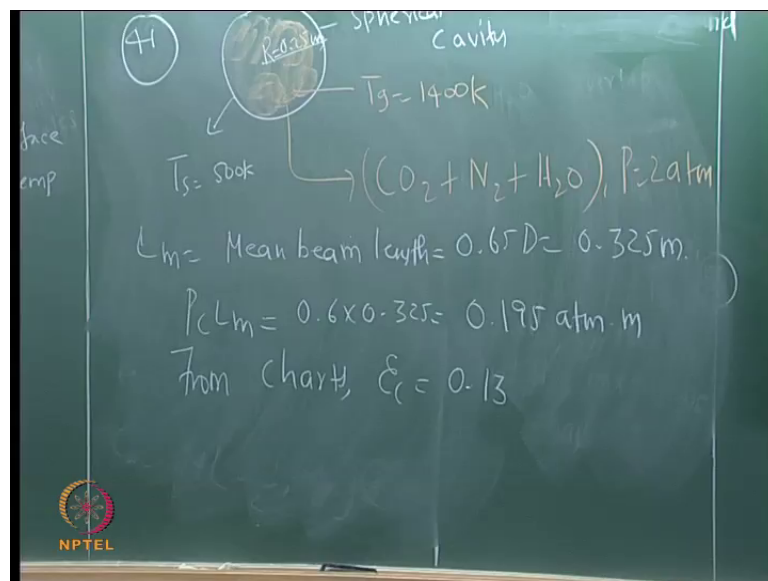 41
R=0.25m
Spherical
cavity
Tg= 1400K
Ts= 500K
(CO2 + N2 + H2O), P=2atm
face
emp
Lm= Mean beam length= 0.65D= 0.325m.
PcLm= 0.6x0.325= 0.195 atm.m
From charts, Ec= 0.13
NPTEL